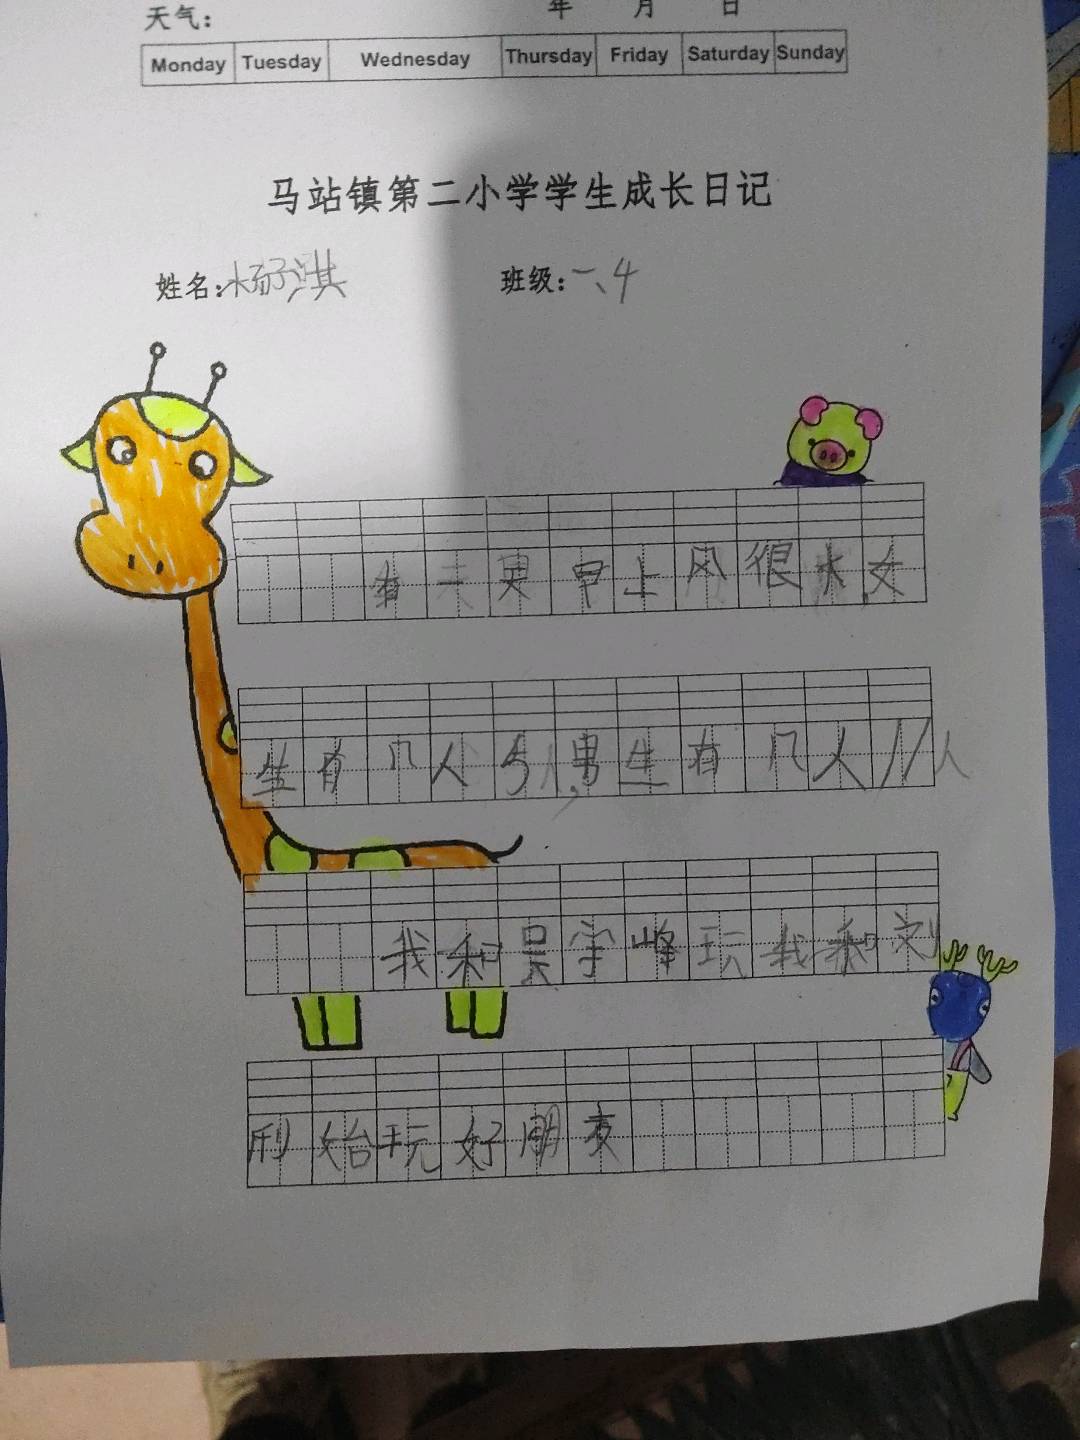 天气： 年 月 日
Monday Tuesday Wednesday Thursday Friday Saturday Sunday
马站镇第二小学学生成长日记
姓名：杨子淇 班级：一、4
有天 早上风很大女
生有几人5人，男生有几人11人
我和吴宇峰玩我和刘
始玩好朋友